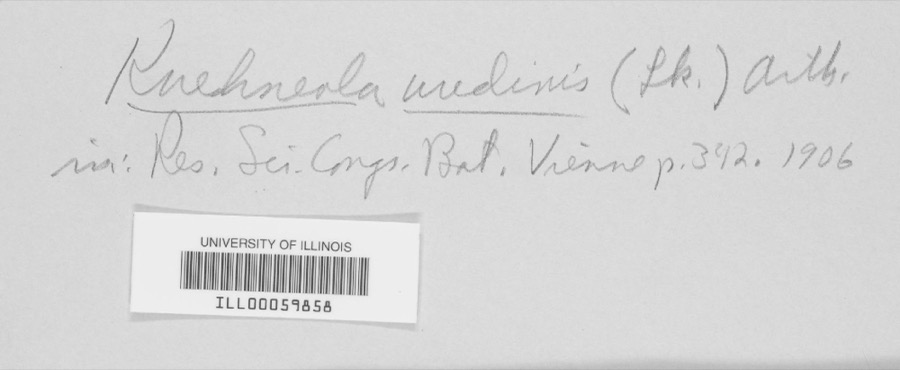 Kuehneola uredinis (Lk.) Arth.
in: Res. Sci. Congs. Bot. Vienne p. 342. 1906
UNIVERSITY OF ILLINOIS
ILL00059858